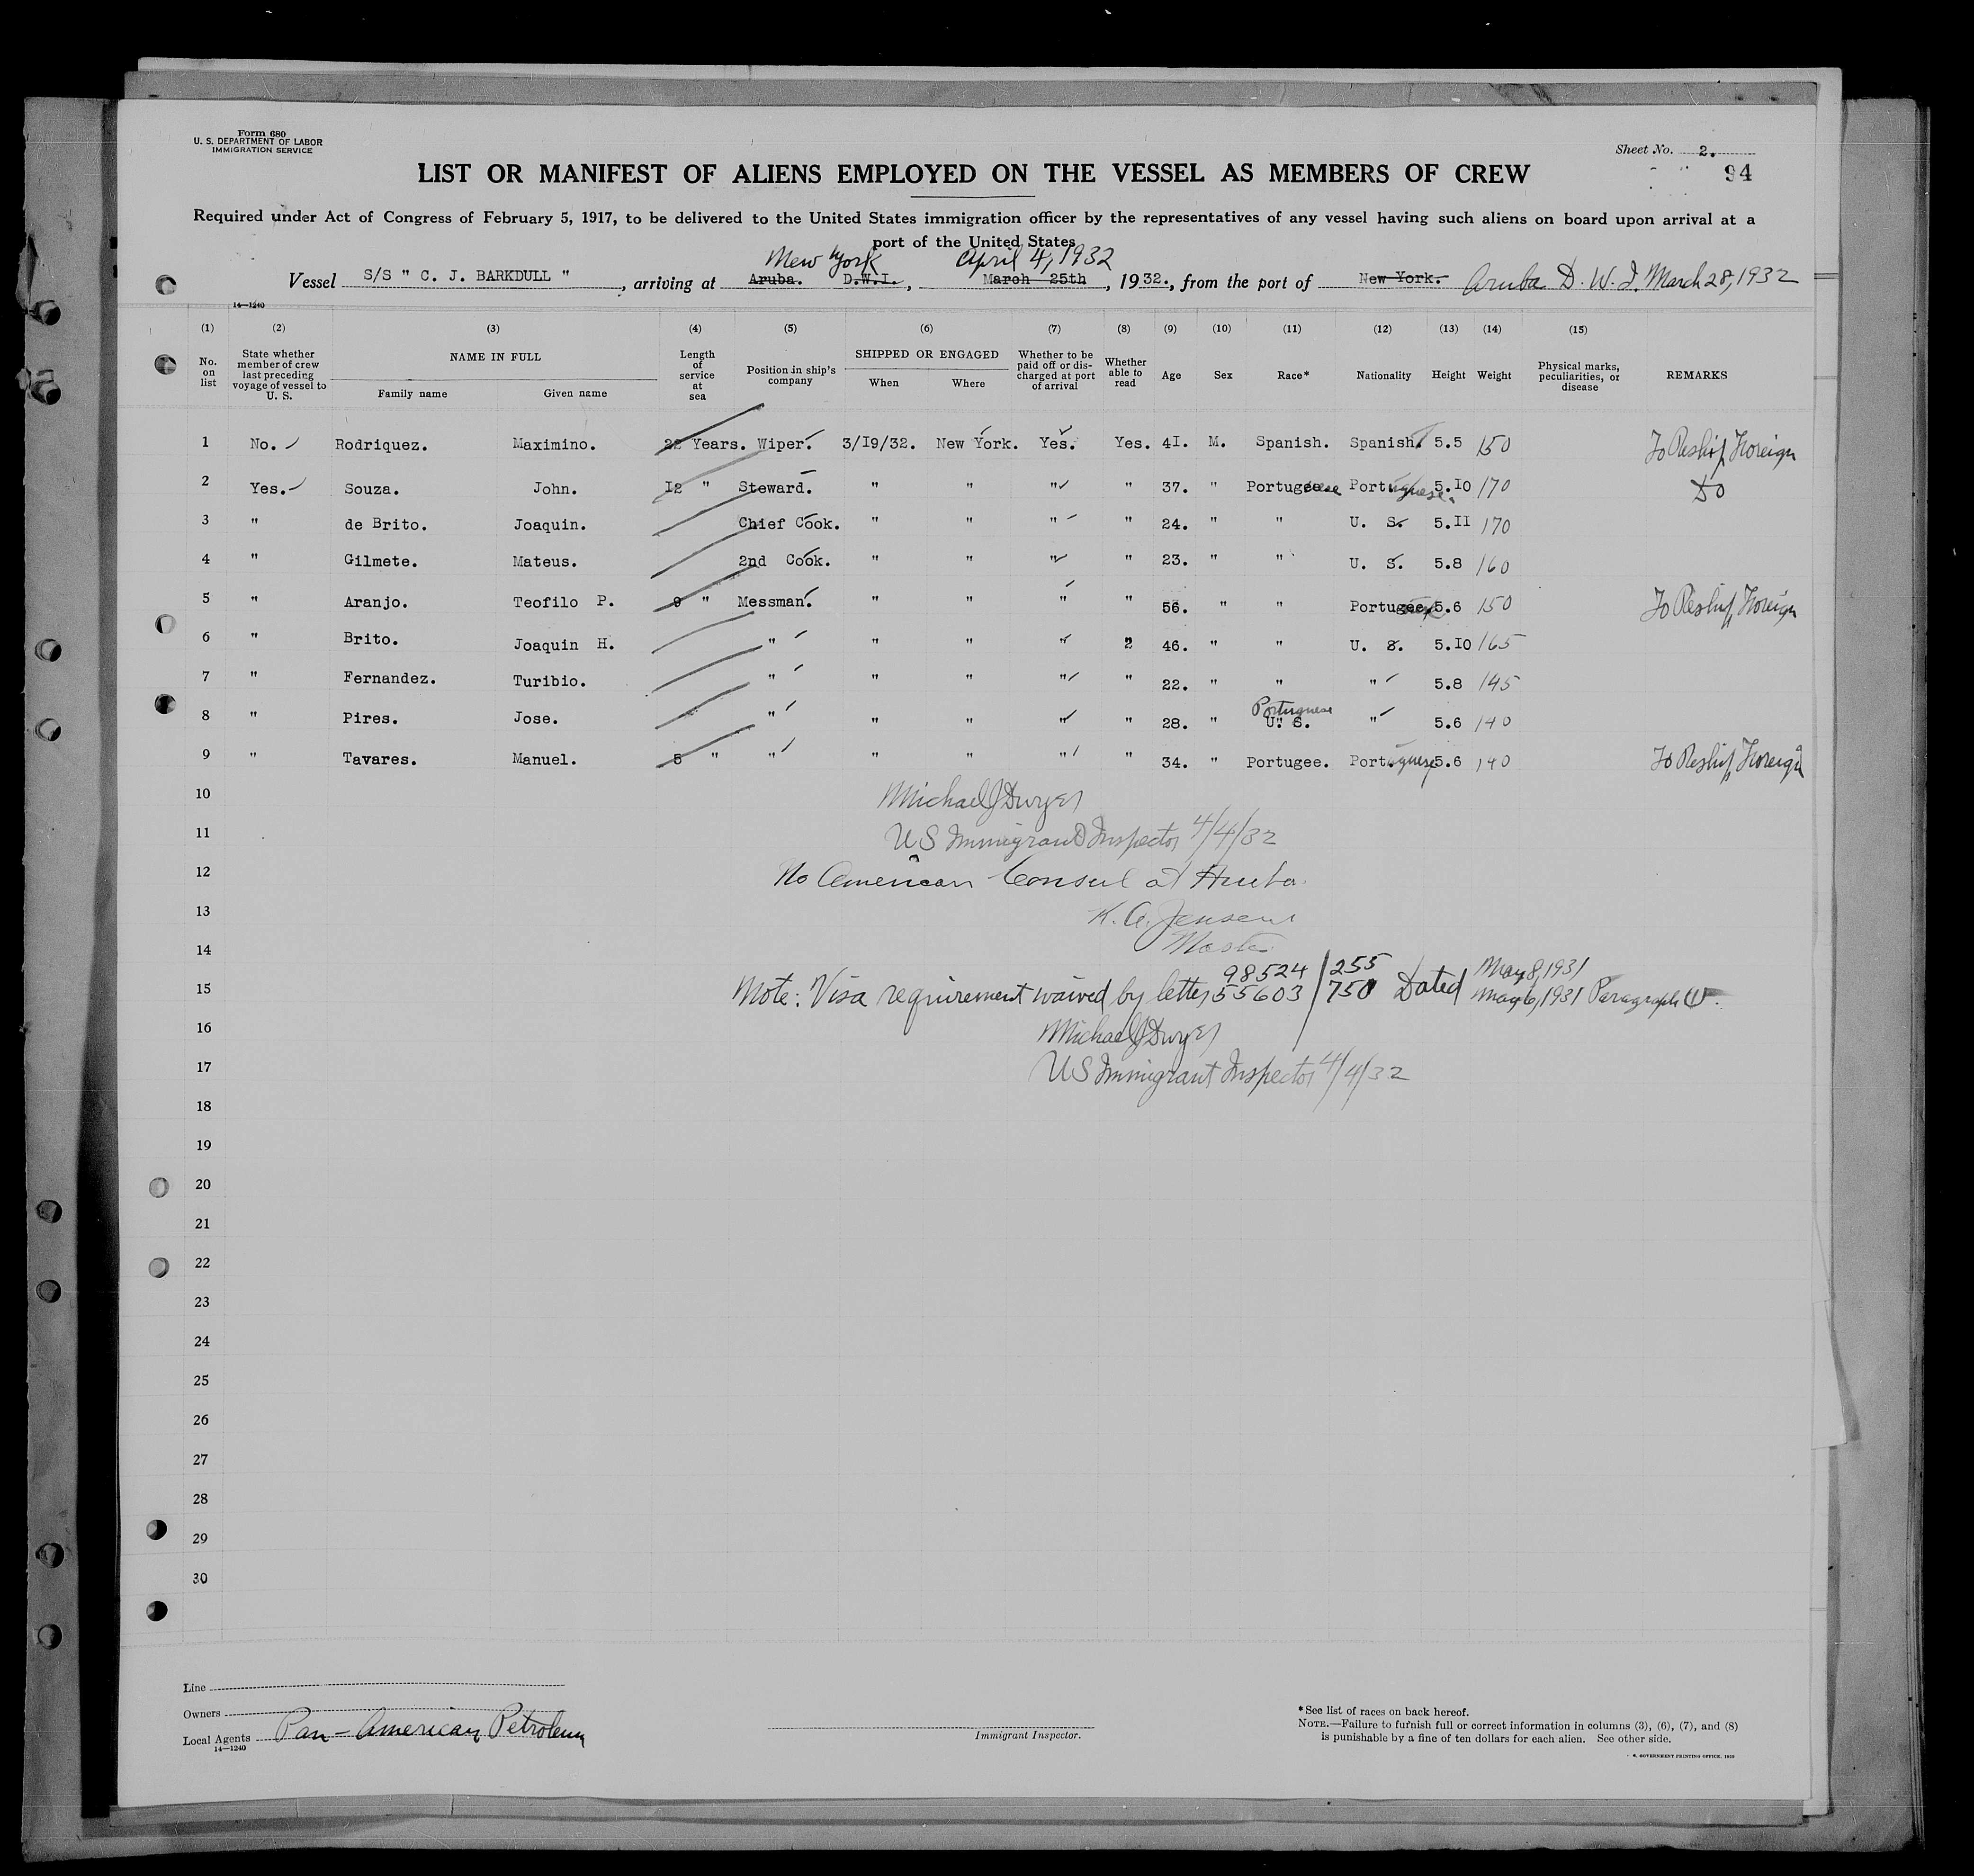 Form 680
U. S. DEPARTMENT OF LABOR
IMMIGRATION SERVICE
Sheet No. 2.
94
LIST OR MANIFEST OF ALIENS EMPLOYED ON THE VESSEL AS MEMBERS OF CREW
Required under Act of Congress of February 5, 1917, to be delivered to the United States immigration officer by the representatives of any vessel having such aliens on board upon arrival at a
port of the United States
New York April 4, 1932
Vessel S/S " C. J. BARKDULL " , arriving at Aruba. D.W.I. , March 25th , 1932., from the port of New York. Aruba D. W. I. March 28, 1932
14—1240
(1) (2) (3) (4) (5) (6) (7) (8) (9) (10) (11) (12) (13) (14) (15)
No. on list State whether member of crew last preceding voyage of vessel to U. S. NAME IN FULL Family name Given name Length of service at sea Position in ship's company SHIPPED OR ENGAGED When Where Whether to be paid off or discharged at port of arrival Whether able to read Age Sex Race* Nationality Height Weight Physical marks, peculiarities, or disease REMARKS
1 No. Rodriquez. Maximino. 22 Years. Wiper. 3/19/32. New York. Yes. Yes. 41. M. Spanish. Spanish. 5.5 150 To Reship Foreign
2 Yes. Souza. John. 12 " Steward. " " " " 37. " Portuguese Portuguese. 5.10 170 Do
3 " de Brito. Joaquin. Chief Cook. " " " " 24. " " U. S. 5.11 170
4 " Gilmete. Mateus. 2nd Cook. " " " " 23. " " U. S. 5.8 160
5 " Aranjo. Teofilo P. 9 " Messman. " " " " 56. " " Portugee 5.6 150 To Reship Foreign
6 " Brito. Joaquin H. " " " " 2 46. " " U. S. 5.10 165
7 " Fernandez. Turibio. " " " " " 22. " " " 5.8 145
8 " Pires. Jose. " " " " " 28. " Portuguese U. S. " 5.6 140
9 " Tavares. Manuel. 5 " " " " " " 34. " Portugee. Portuguese 5.6 140 To Reship Foreign
10 Michael J Dwyer
11 US Immigrant Inspector 4/4/32
12 No American Consul at Aruba.
13 K. A. Jensen
14 Master
98524/255 May 8, 1931
15 Note: Visa requirement waived by letter 55603/750 Dated May 6, 1931 Paragraph (1)
16 Michael J Dwyer
17 US Immigrant Inspector 4/4/32
18
19
20
21
22
23
24
25
26
27
28
29
30
Line
Owners
Local Agents Pan-American Petroleum
14—1240
Immigrant Inspector.
*See list of races on back hereof.
NOTE.—Failure to furnish full or correct information in columns (3), (6), (7), and (8)
is punishable by a fine of ten dollars for each alien. See other side.
GOVERNMENT PRINTING OFFICE